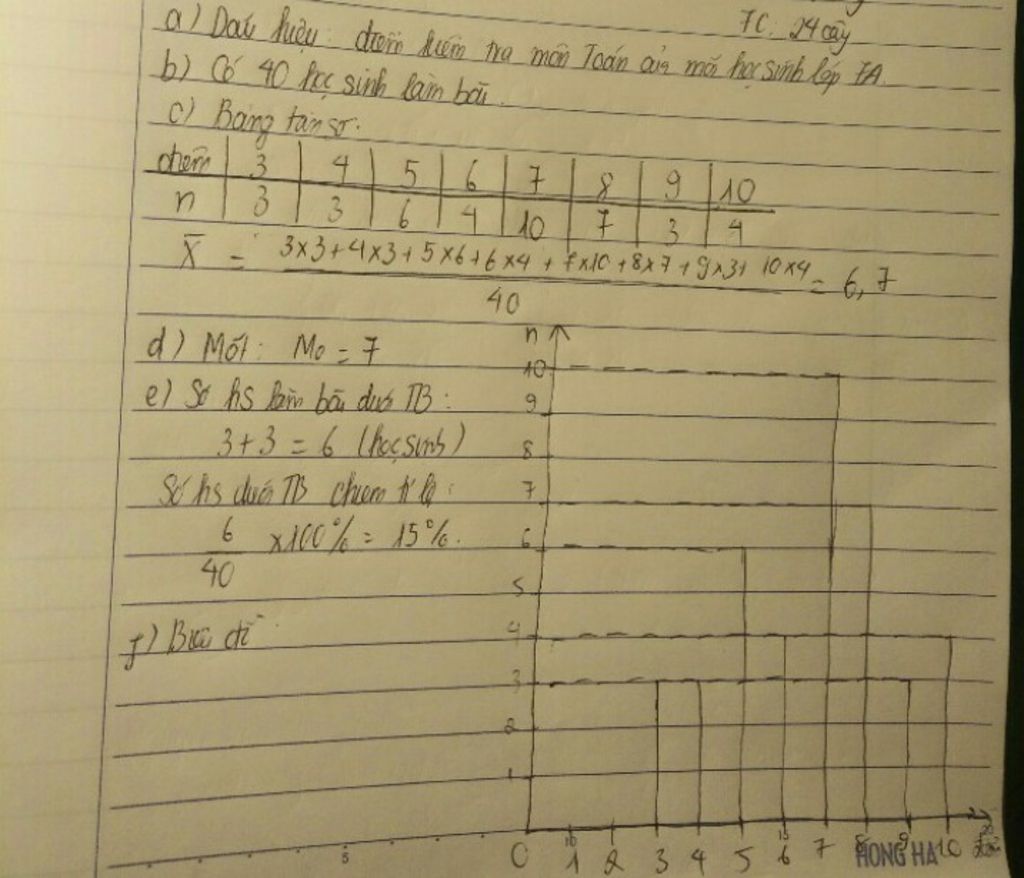 7C: 24 cây
a) Dấu hiệu: điểm kiểm tra môn Toán của mỗi học sinh lớp 7A.
b) Có 40 học sinh làm bài.
c) Bảng tần số.
điểm | 3 | 4 | 5 | 6 | 7 | 8 | 9 | 10
n | 3 | 3 | 6 | 4 | 10 | 7 | 3 | 4
X̄ = 3×3+4×3+5×6+6×4+7×10+8×7+9×3+10×4 = 6,7
40
d) Mốt: M₀ = 7
e) Số hs làm bài dưới TB:
3+3 = 6 (học sinh)
Số hs dưới TB chiếm tỉ lệ:
6
×100% = 15%.
40
f) Biểu đồ
n
10
9
8
7
6
5
4
3
2
1
0 1 2 3 4 5 6 7 8 9 10
5 10 15
HONG HA